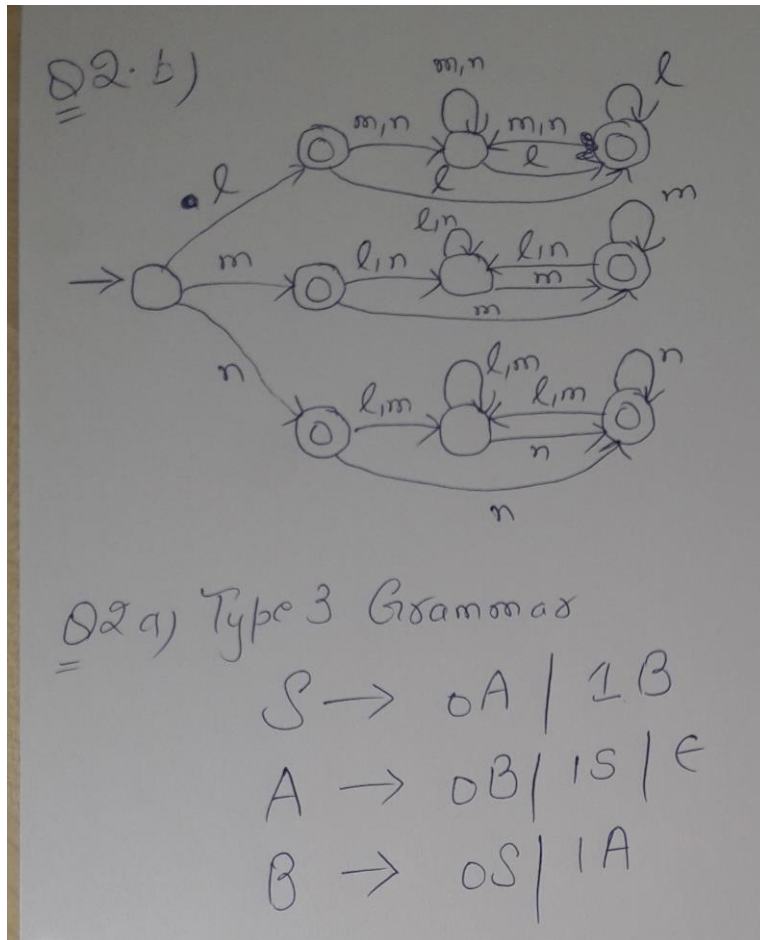 Q2. b)
m,n
l
m,n
m,n
l
l
l
m
l,n
m
l,n
l,n
m
m
n
l,m
n
l,m
l,m
n
n
Q2a) Type 3 Grammar
S → 0A | 1B
A → 0B | 1S | ϵ
B → 0S | 1A